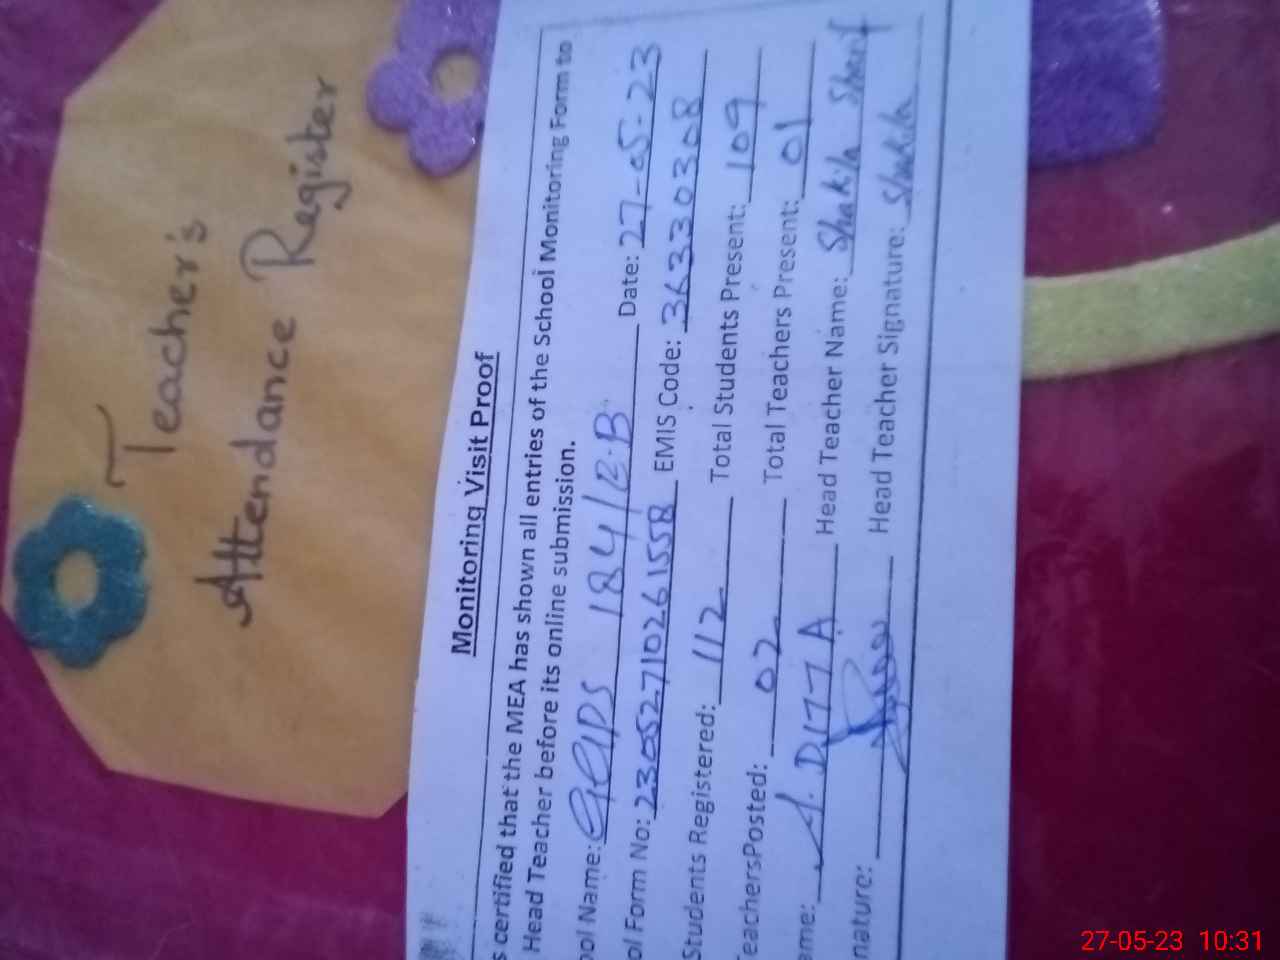 Teacher's
Attendance Register
Monitoring Visit Proof
s certified that the MEA has shown all entries of the School Monitoring Form to
Head Teacher before its online submission.
ool Name: GGPS 184/E.B Date: 27-05-23
ol Form No: 230527102615 58 EMIS Code: 36330308
Students Registered: 112 Total Students Present: 109
TeachersPosted: 02 Total Teachers Present: 01
ame: A. DITTA Head Teacher Name: Shakila Sharif
nature: Head Teacher Signature: Shakila
27-05-23 10:31